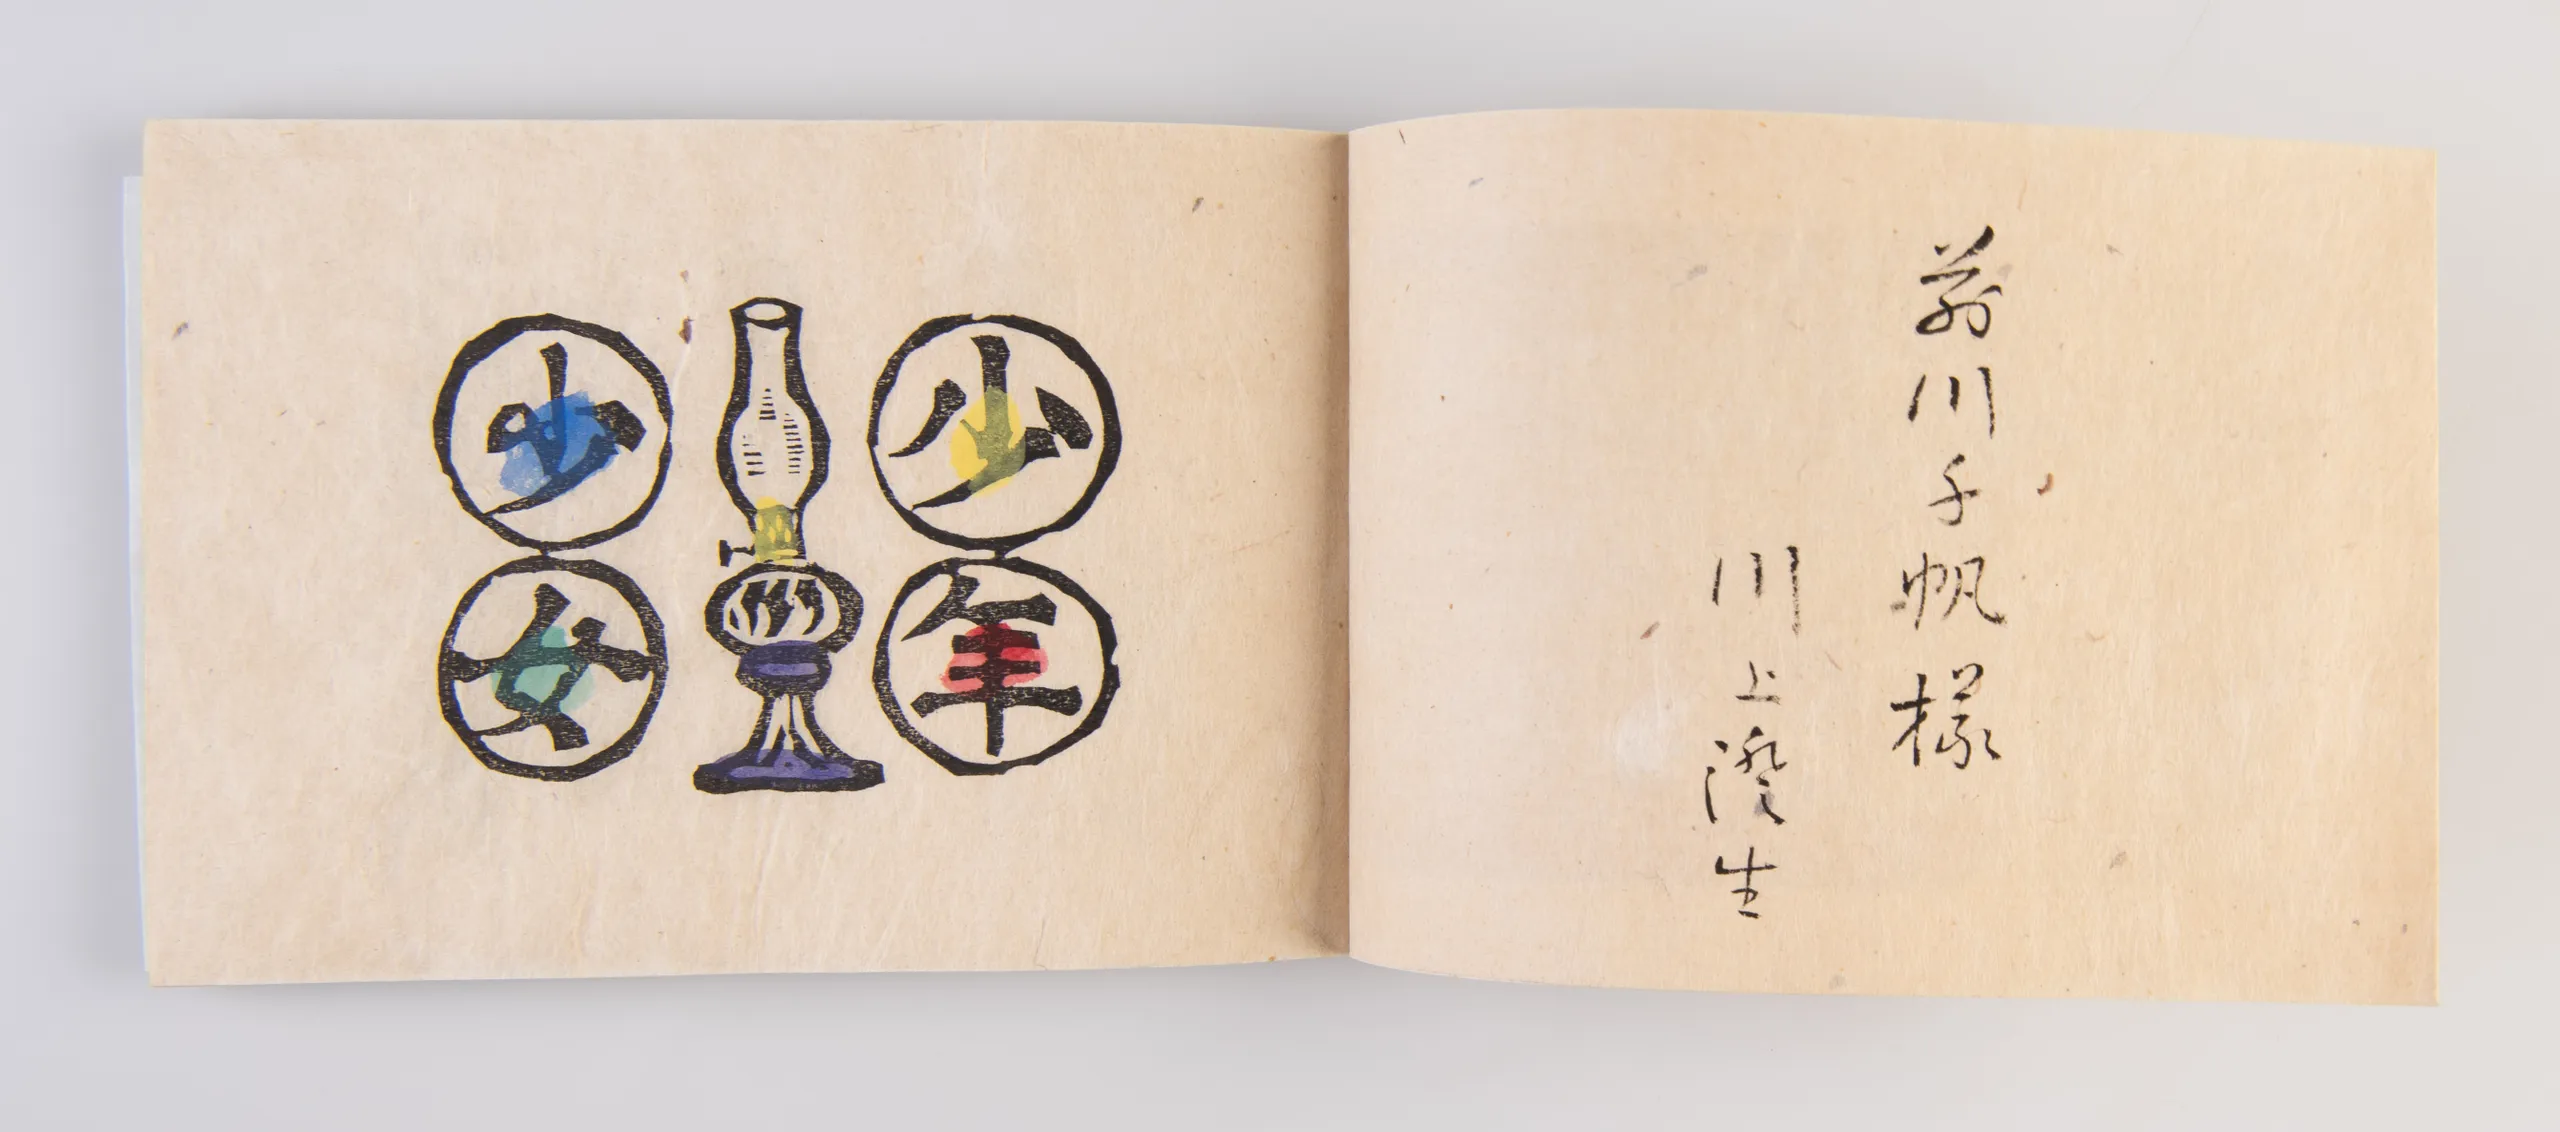 前川千帆様
川上澄生
少年
少女